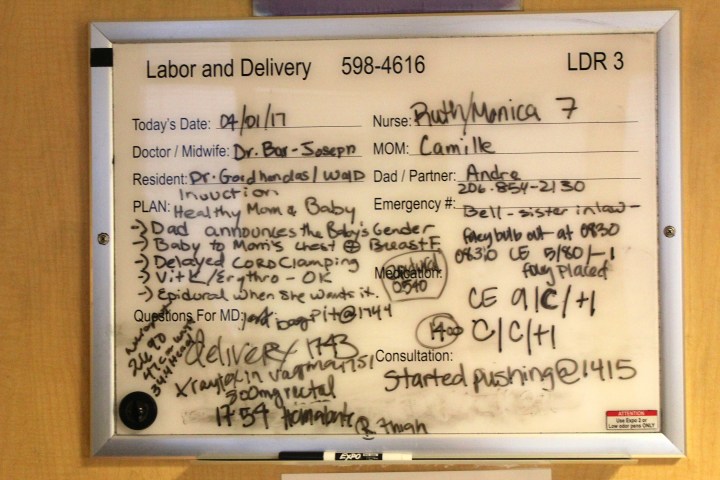 Labor and Delivery 598-4616 LDR 3
Today's Date: 04/01/17
Nurse: Ruth/Monica 7
Doctor / Midwife: Dr. Bar-Joseph
MOM: Camille
Resident: Dr. Gordhandas/Wald
Dad / Partner: Andre
206-854-2130
PLAN: Induction
Healthy Mom & Baby
Emergency #:
Bell - sister in law -
-> Dad announces the Baby's Gender
-> Baby to Mom's chest ⊕ Breast F.
-> Delayed Cord Clamping
-> Vit K/Erythro - OK
-> Epidural when she wants it.
foley bulb out at 0830
0830 CE 5/80/-1
foley placed
Medication:
Epidural
0540
CE 9/C/+1
1400 C/C/+1
Questions For MD: bag Pit@1744
delivery 1743
Consultation:
Started pushing@1415
47cm
34.4 Head
300mg rectal
1754 R thigh
ATTENTION
Use Expo 2 or
Low odor pens ONLY
EXPO